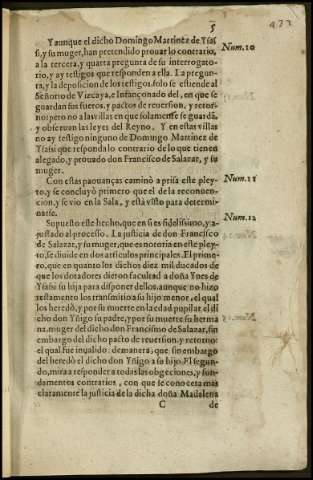 5
Y aunque el dicho Domingo Martinez de Ysas
si, y su muger, han pretendido prouar lo contrario,
a la tercera, y quarta pregunta de su interrogato-
rio, y ay testigos que responden a ella. La pregun-
ta, y la deposicion de los testigos solo se estiende al
Señorio de Vizcaya, e Infançonado del, en que se
guardan sus fueros, y pactos de reuersion, y retor-
no: pero no a las villas en que solamente se guardã,
y obseruan las leyes del Reyno. Y en estas villas
no ay testigo ninguno de Domingo Martinez de
Ysasi que responda lo contrario de lo que tienen
alegado, y prouado don Francisco de Salazar, y su
muger.
Num. 10
Con estas prouanças caminò a prisa este pley-
to, y se concluyò primero que el de la reconuen-
cion, y se vio en la Sala, y està visto para determi-
narse.
Num. 11
Supuesto este hecho, que en si es fidelissimo, y a-
justado al processo. La justicia de don Francisco
de Salazar, y su muger, que es notoria en este pley-
to, se diuide en dos articulos principales. El prime-
ro, que en quanto los dichos diez mil ducados de
que los dotadores dieron facultad a doña Ynes de
Ysasi su hija para disponer dellos, aunque no hizo
testamento los transmitio a su hijo menor, el qual
los heredò, y por su muerte en la edad pupilar el di
cho don Yñigo su padre, y por su muerte su herma
na, muger del dicho don Francisco de Salazar, sin
embargo del dicho pacto de reuersion, y retorno:
el qual fue inualido: demanera, que sin embargo
del heredò el dicho don Yñigo a su hijo. El segun-
do, mira a responder a todas las obgeciones, y fun-
damentos contrarios, con que se conocerà mas
claramente la justicia de la dicha doña Madalena
Num. 12
C
de